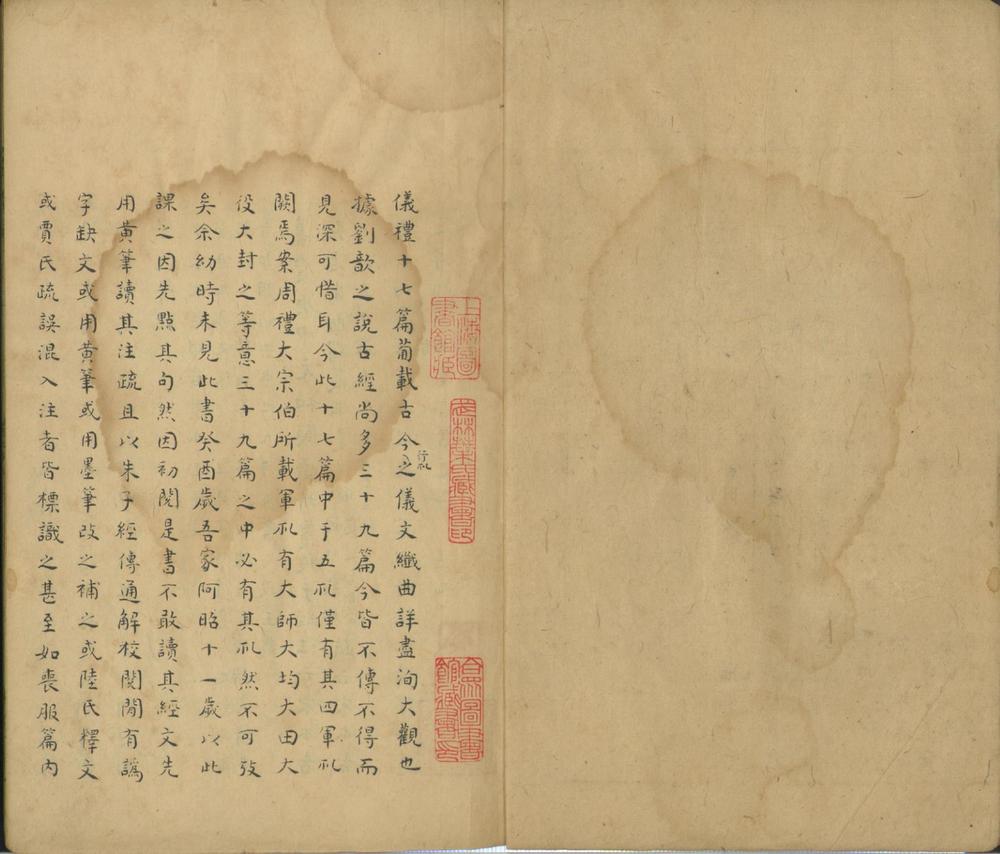 儀禮十七篇萄載古今之行禮儀文纖曲詳盡洵大觀也
據劉歆之說古經尚多三十九篇今皆不傳不得而
見深可惜耳今此十七篇中于五礼僅有其四軍礼
闕焉案周禮大宗伯所載軍礼有大師大均大田大
役大封之等意三十九篇之中必有其礼然不可攷
矣余幼時未見此書癸酉歲吾家阿昭十一歲以此
課之因先點其句然因初閱是書不敢讀其經文先
用黄筆讀其注疏且以朱子經傳通解校閱閒有譌
字缺文或用黄筆或用墨筆改之補之或陸氏釋文
或賈氏疏誤混入注者皆標識之甚至如喪服篇内
上海圖書館藏
武林葉氏藏書印
合众圖書館藏書印